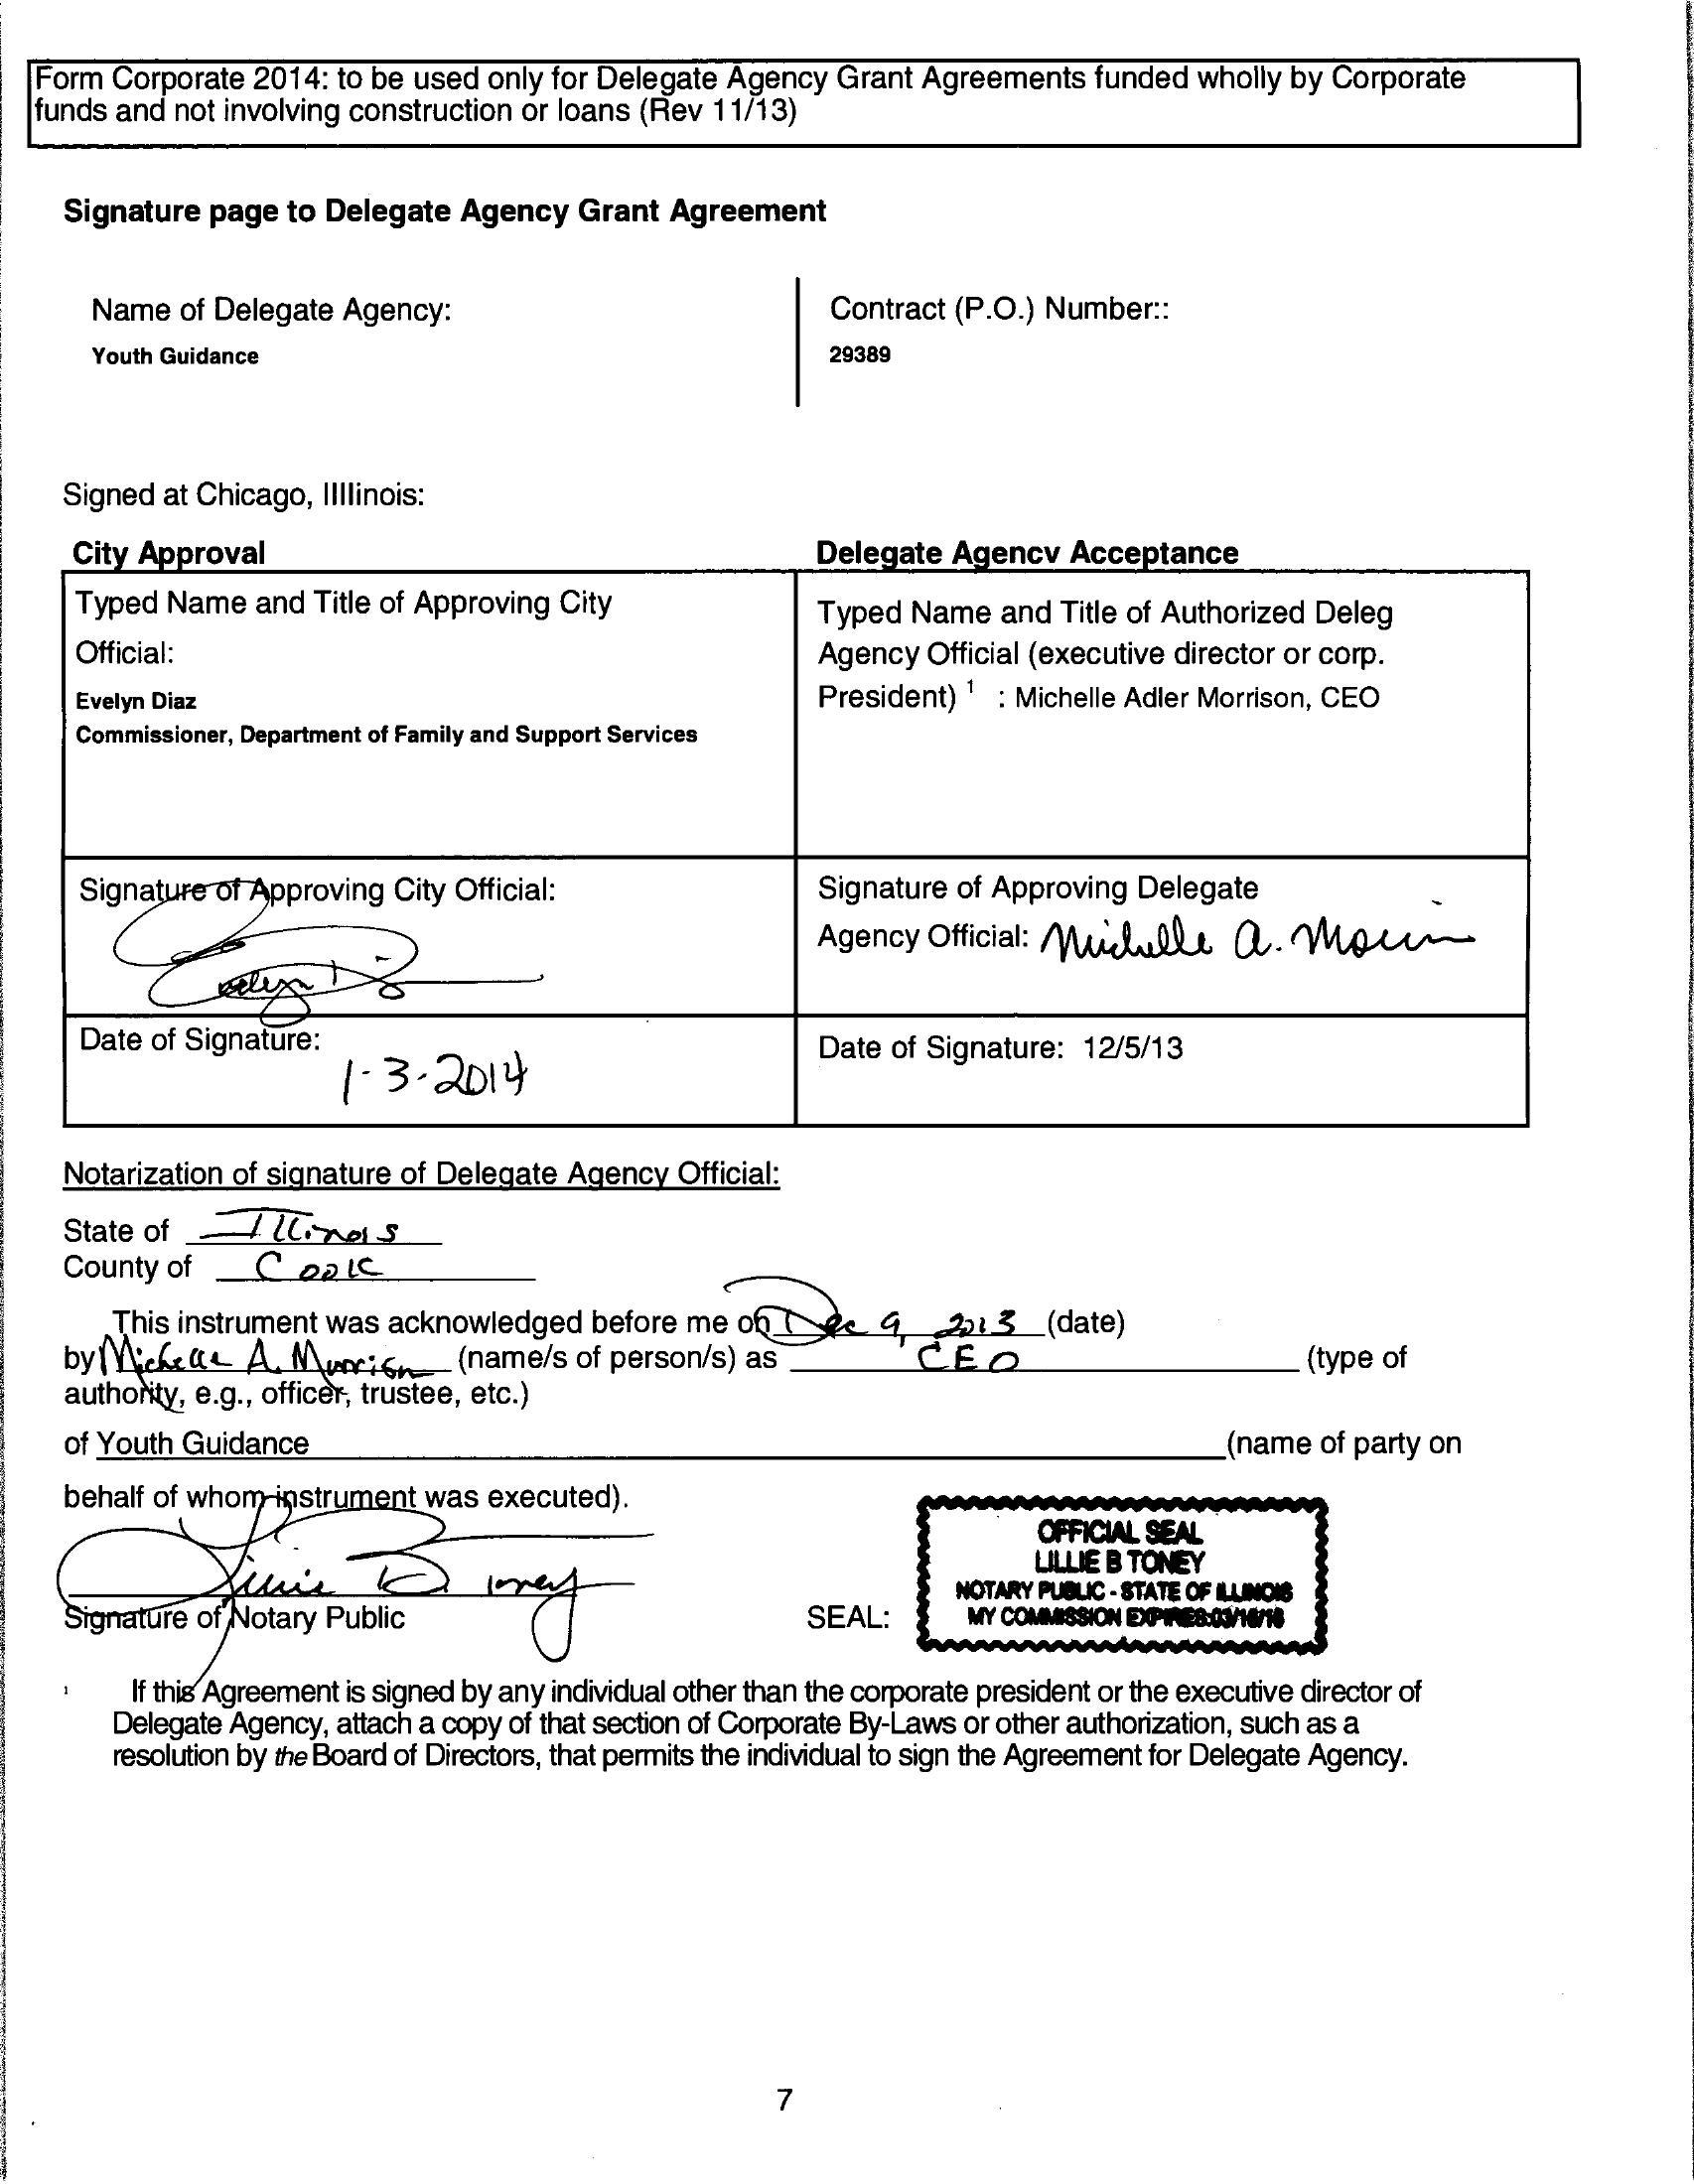 Form Corporate 2014: to be used only for Delegate Agency Grant Agreements funded wholly by Corporate
funds and not involving construction or loans (Rev 11/13)
Signature page to Delegate Agency Grant Agreement
Name of Delegate Agency:
Youth Guidance
Contract (P.O.) Number::
29389
Signed at Chicago, Illlinois:
City Approval
Typed Name and Title of Approving City
Official:
Evelyn Diaz
Commissioner, Department of Family and Support Services
Delegate Agency Acceptance
Typed Name and Title of Authorized Deleg
Agency Official (executive director or corp.
President) 1 : Michelle Adler Morrison, CEO
Signature of Approving City Official:
Evelyn Diaz
Signature of Approving Delegate
Agency Official: Michelle A. Morrison
Date of Signature:
1-3-2014
Date of Signature: 12/5/13
Notarization of signature of Delegate Agency Official:
State of Illinois
County of Cook
This instrument was acknowledged before me on Dec 9, 2013 (date)
by Michelle A. Morrison (name/s of person/s) as CEO (type of
authority, e.g., officer, trustee, etc.)
of Youth Guidance (name of party on
behalf of whom instrument was executed).
Lillie B Toney
Signature of Notary Public
SEAL:
OFFICIAL SEAL
LILLIE B TONEY
NOTARY PUBLIC - STATE OF ILLINOIS
MY COMMISSION EXPIRES:
1 If this Agreement is signed by any individual other than the corporate president or the executive director of
Delegate Agency, attach a copy of that section of Corporate By-Laws or other authorization, such as a
resolution by the Board of Directors, that permits the individual to sign the Agreement for Delegate Agency.
7